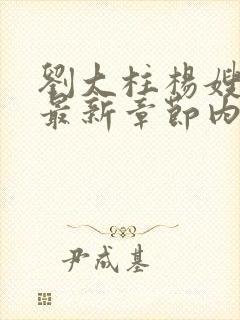 劉太柱楊嫂
最新章節內
尹成基